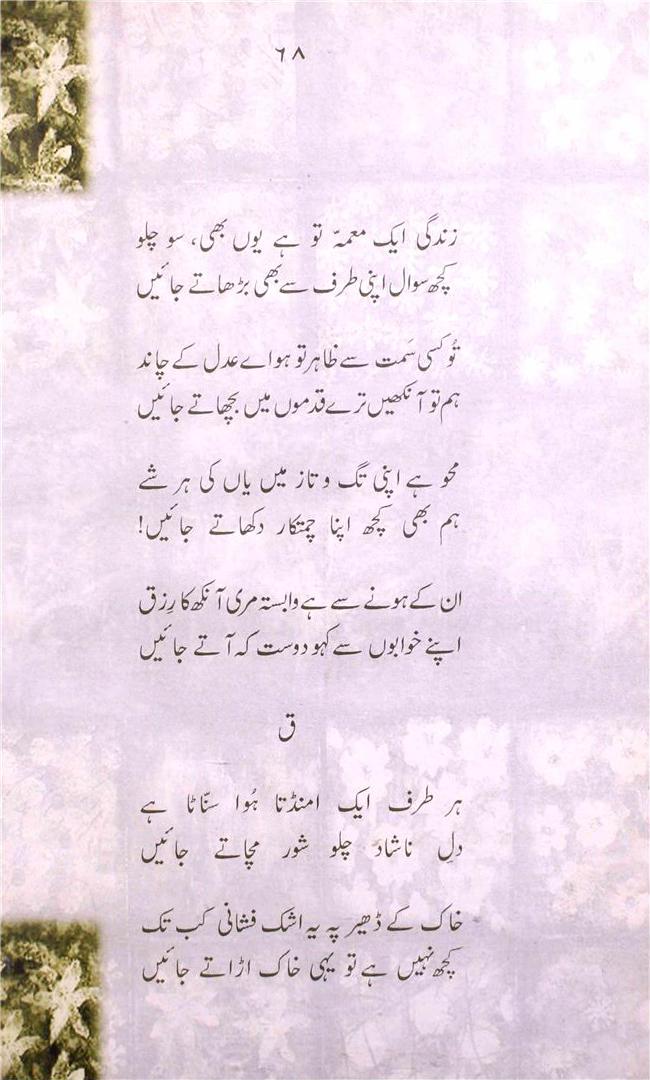 ٦٨
زندگی ایک معمہّ تو ہے یوں بھی، سو چلو
کچھ سوال اپنی طرف سے بھی بڑھاتے جائیں
تُو کسی سَمت سے ظاہر تو ہو اے عدل کے چاند
ہم تو آنکھیں ترے قدموں میں بچھاتے جائیں
محو ہے اپنی تگ و تاز میں یاں کی ہر شے
ہم بھی کچھ اپنا چمتکار دکھاتے جائیں!
ان کے ہونے سے ہے وابستہ مری آنکھ کا رِزق
اپنے خوابوں سے کہو دوست کہ آتے جائیں
ق
ہر طرف ایک امنڈتا ہُوا سنّاٹا ہے
دلِ ناشاد چلو شور مچاتے جائیں
خاک کے ڈھیر پہ یہ اشک فشانی کَب تک
کچھ نہیں ہے تو یہی خاک اڑاتے جائیں